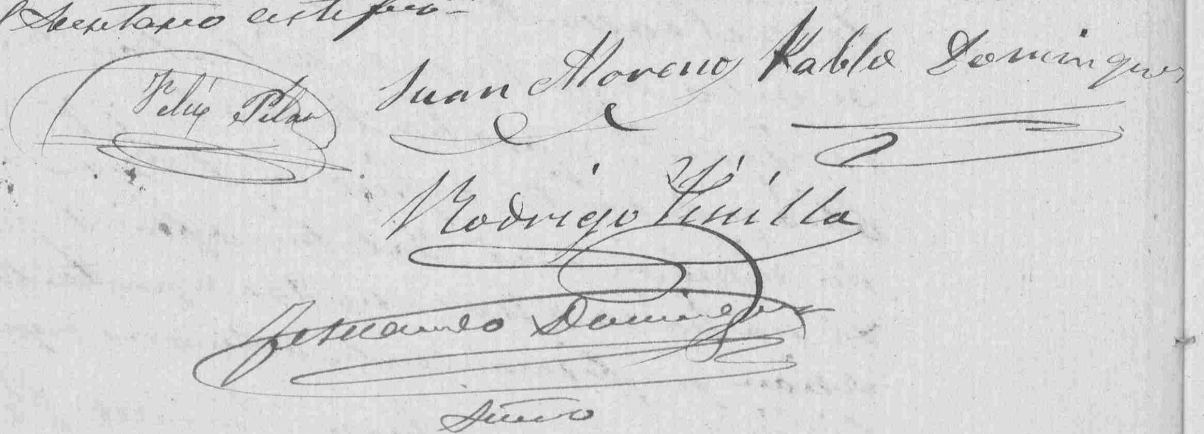 Secretario certifico=
Felix Pilar Juan Moreno Pablo Dominguez
Rodrigo Pinilla
Fernando Dominguez
Srio